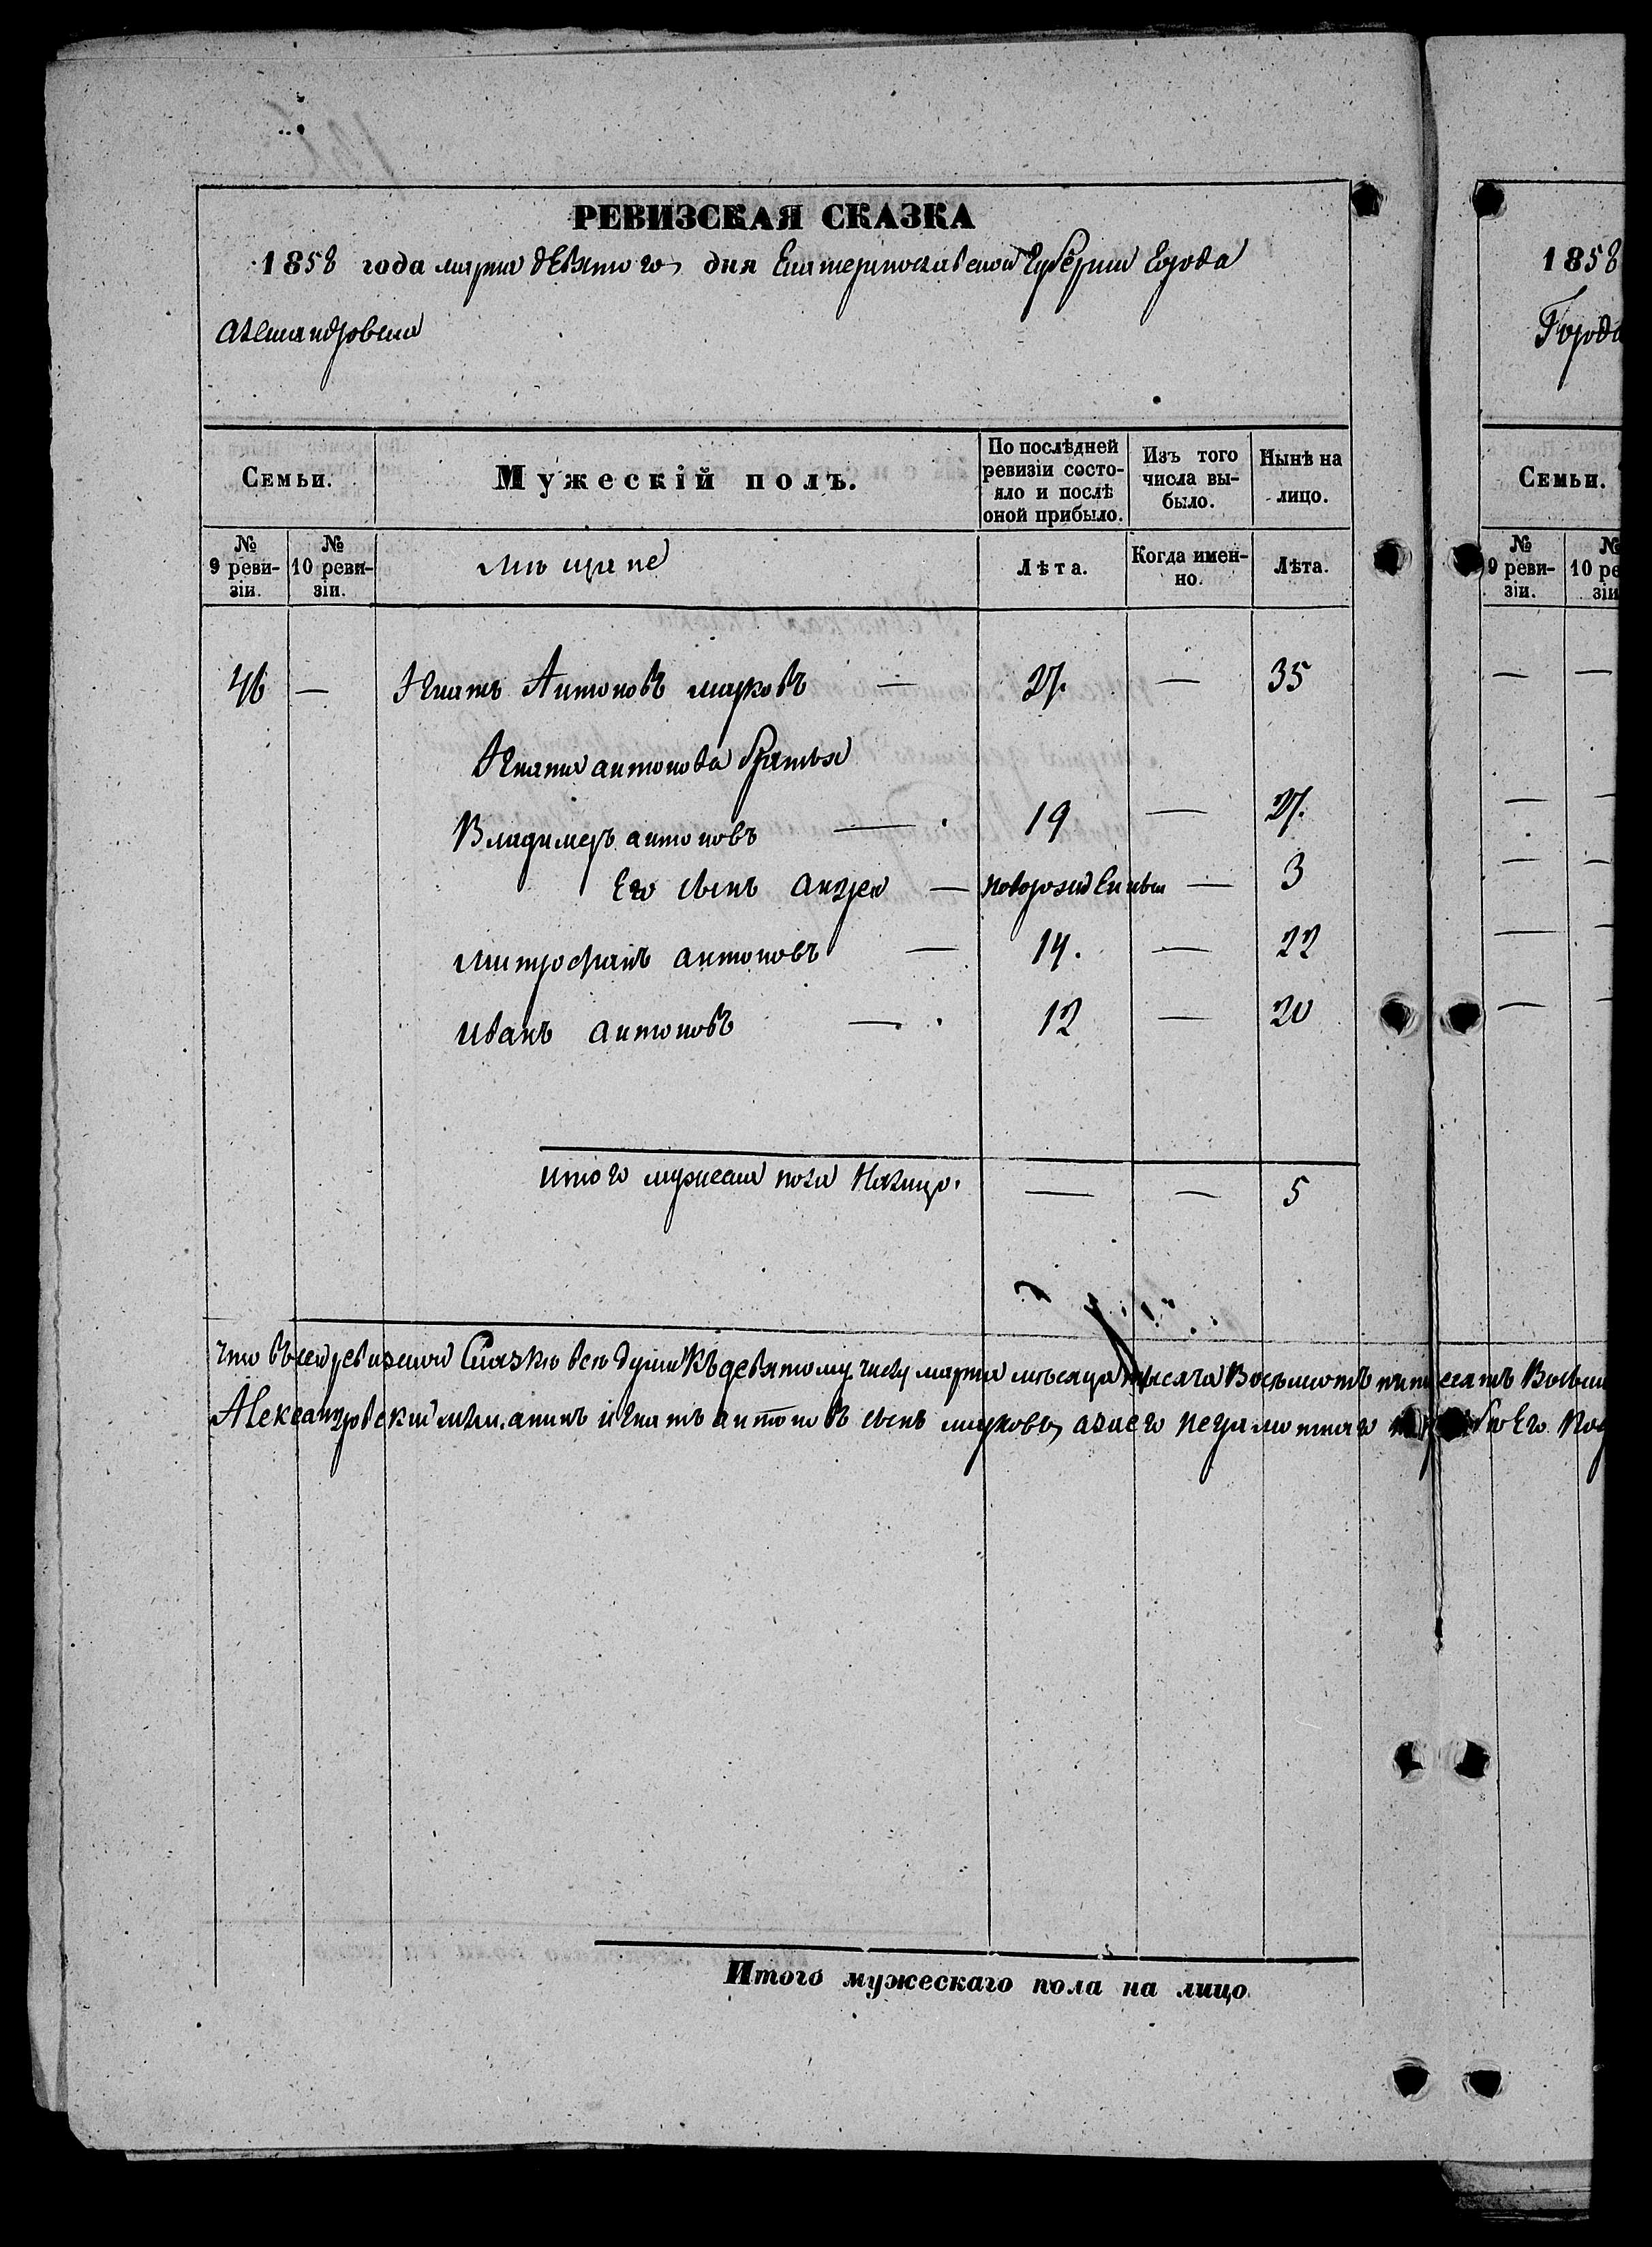 РЕВИЗСКАЯ СКАЗКА
1858 года марта девятого дня Екатеринославской Губернии Города
Александровска
Семьи.
Мужескій полъ.
По послѣдней ревизіи состояло и послѣ оной прибыло.
Изъ того числа выбыло.
Нынѣ на лицо.
№ 9 ревизіи.
№ 10 ревизіи.
мѣщане
Лѣта.
Когда именно.
Лѣта.
46 — Игнатъ Антоновъ марковъ — 27. — 35
Игната антонова братья
Владимеръ антоновъ — 19 — 27.
Его сынъ андрей — новорожденны — 3
митрофанъ антоновъ — 14. — 22
иванъ антоновъ — 12 — 20
итого мужеска пола Налицо. — — 5
что въсей ревизской Сказкѣ всѣ души Къдевятому числу марта мѣсяца тысяча Восъмсотъ
Александровский игнатъ антоновъ сынъ марковъ, азанего неграмотнаго Его
Итого мужескаго пола на лицо
1858
Города
Семьи.
№ 9 ревизіи.
№ 10 ре
зіи
— —
— —
— —
— —
— —